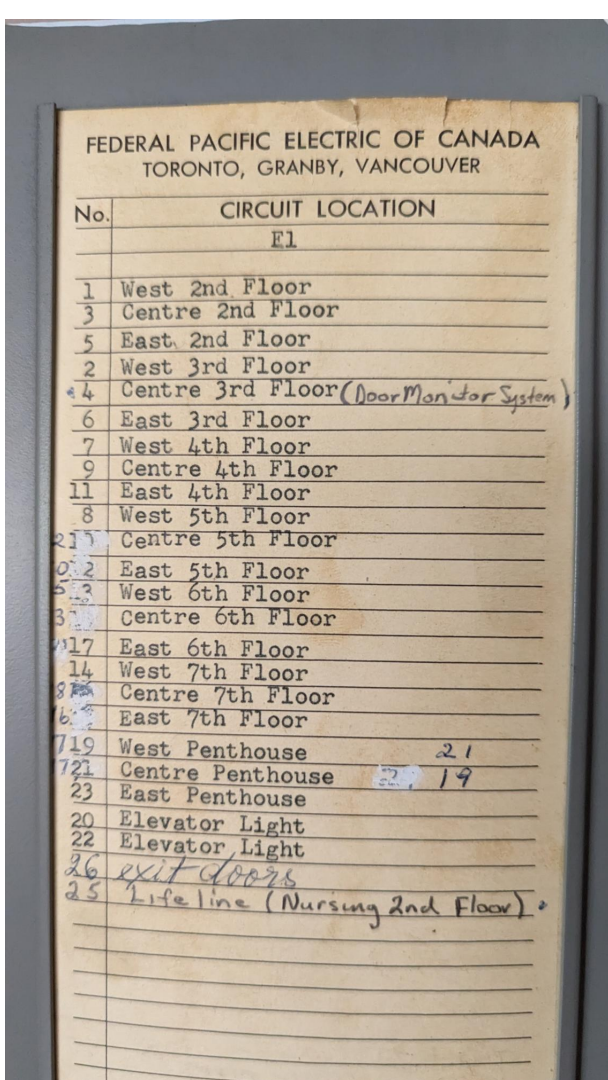 FEDERAL PACIFIC ELECTRIC OF CANADA
TORONTO, GRANBY, VANCOUVER
No. CIRCUIT LOCATION
E1
1 West 2nd Floor
3 Centre 2nd Floor
5 East 2nd Floor
2 West 3rd Floor
4 Centre 3rd Floor (Door Monitor System)
6 East 3rd Floor
7 West 4th Floor
9 Centre 4th Floor
11 East 4th Floor
8 West 5th Floor
Centre 5th Floor
East 5th Floor
West 6th Floor
Centre 6th Floor
17 East 6th Floor
14 West 7th Floor
Centre 7th Floor
East 7th Floor
19 West Penthouse 21
21 Centre Penthouse 19
23 East Penthouse
20 Elevator Light
22 Elevator Light
26 exit doors
25 Lifeline (Nursing 2nd Floor)